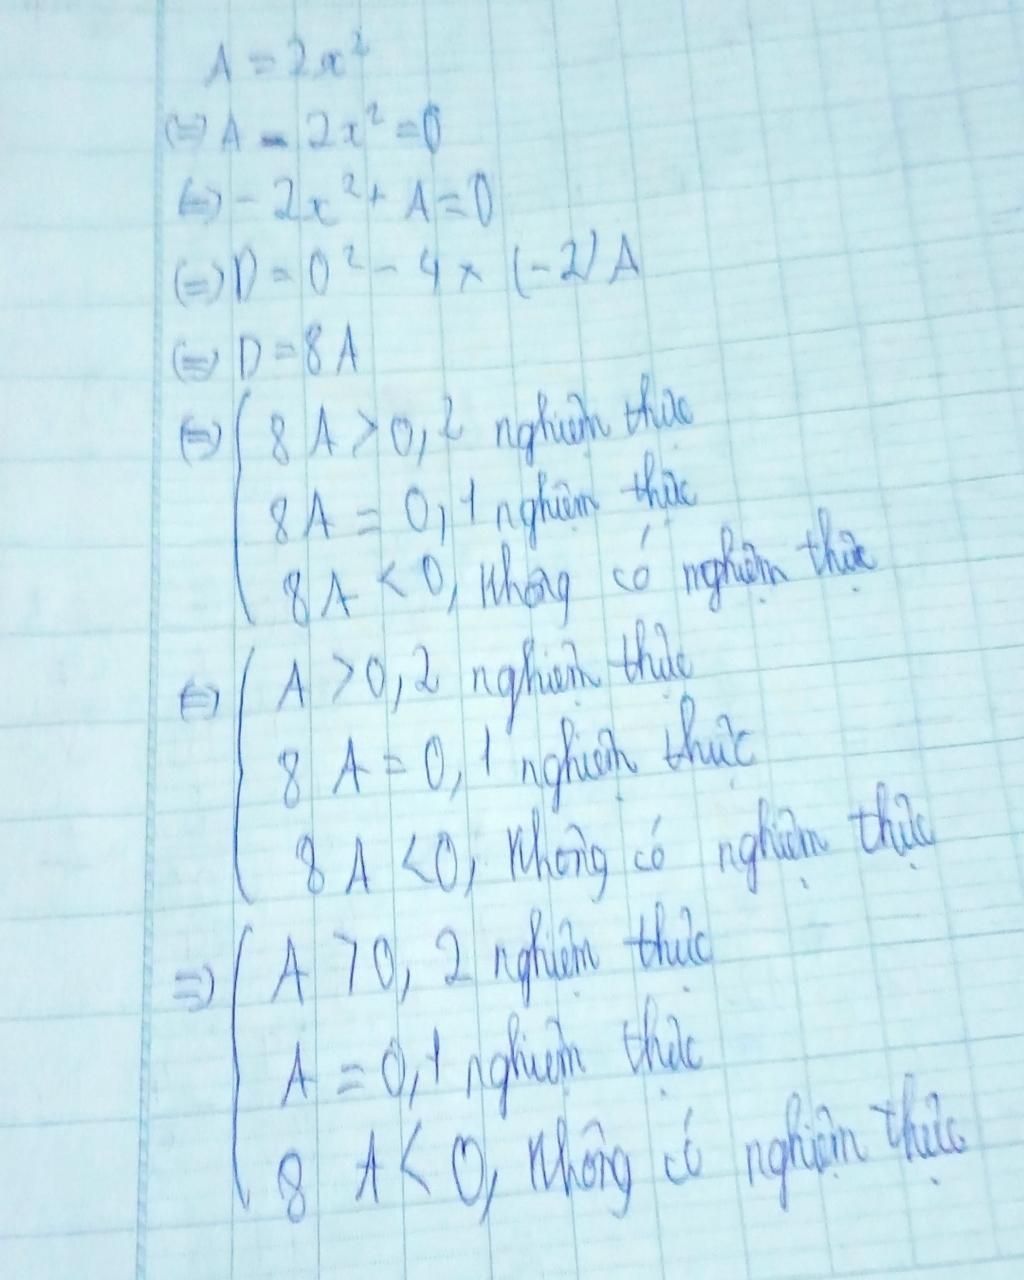 A = 2x²
(=) A - 2x² = 0
(=) - 2x² + A = 0
(=) D = 0² - 4 x (-2) A
(=) D = 8A
(=) { 8A > 0, 2 nghiệm thực
8A = 0, 1 nghiệm thực
8A < 0, không có nghiệm thực
(=) { A > 0, 2 nghiệm thực
8 A = 0, 1 nghiệm thực
8 A < 0, không có nghiệm thực
=) { A > 0, 2 nghiệm thực
A = 0, 1 nghiệm thực
8 A < 0, không có nghiệm thực